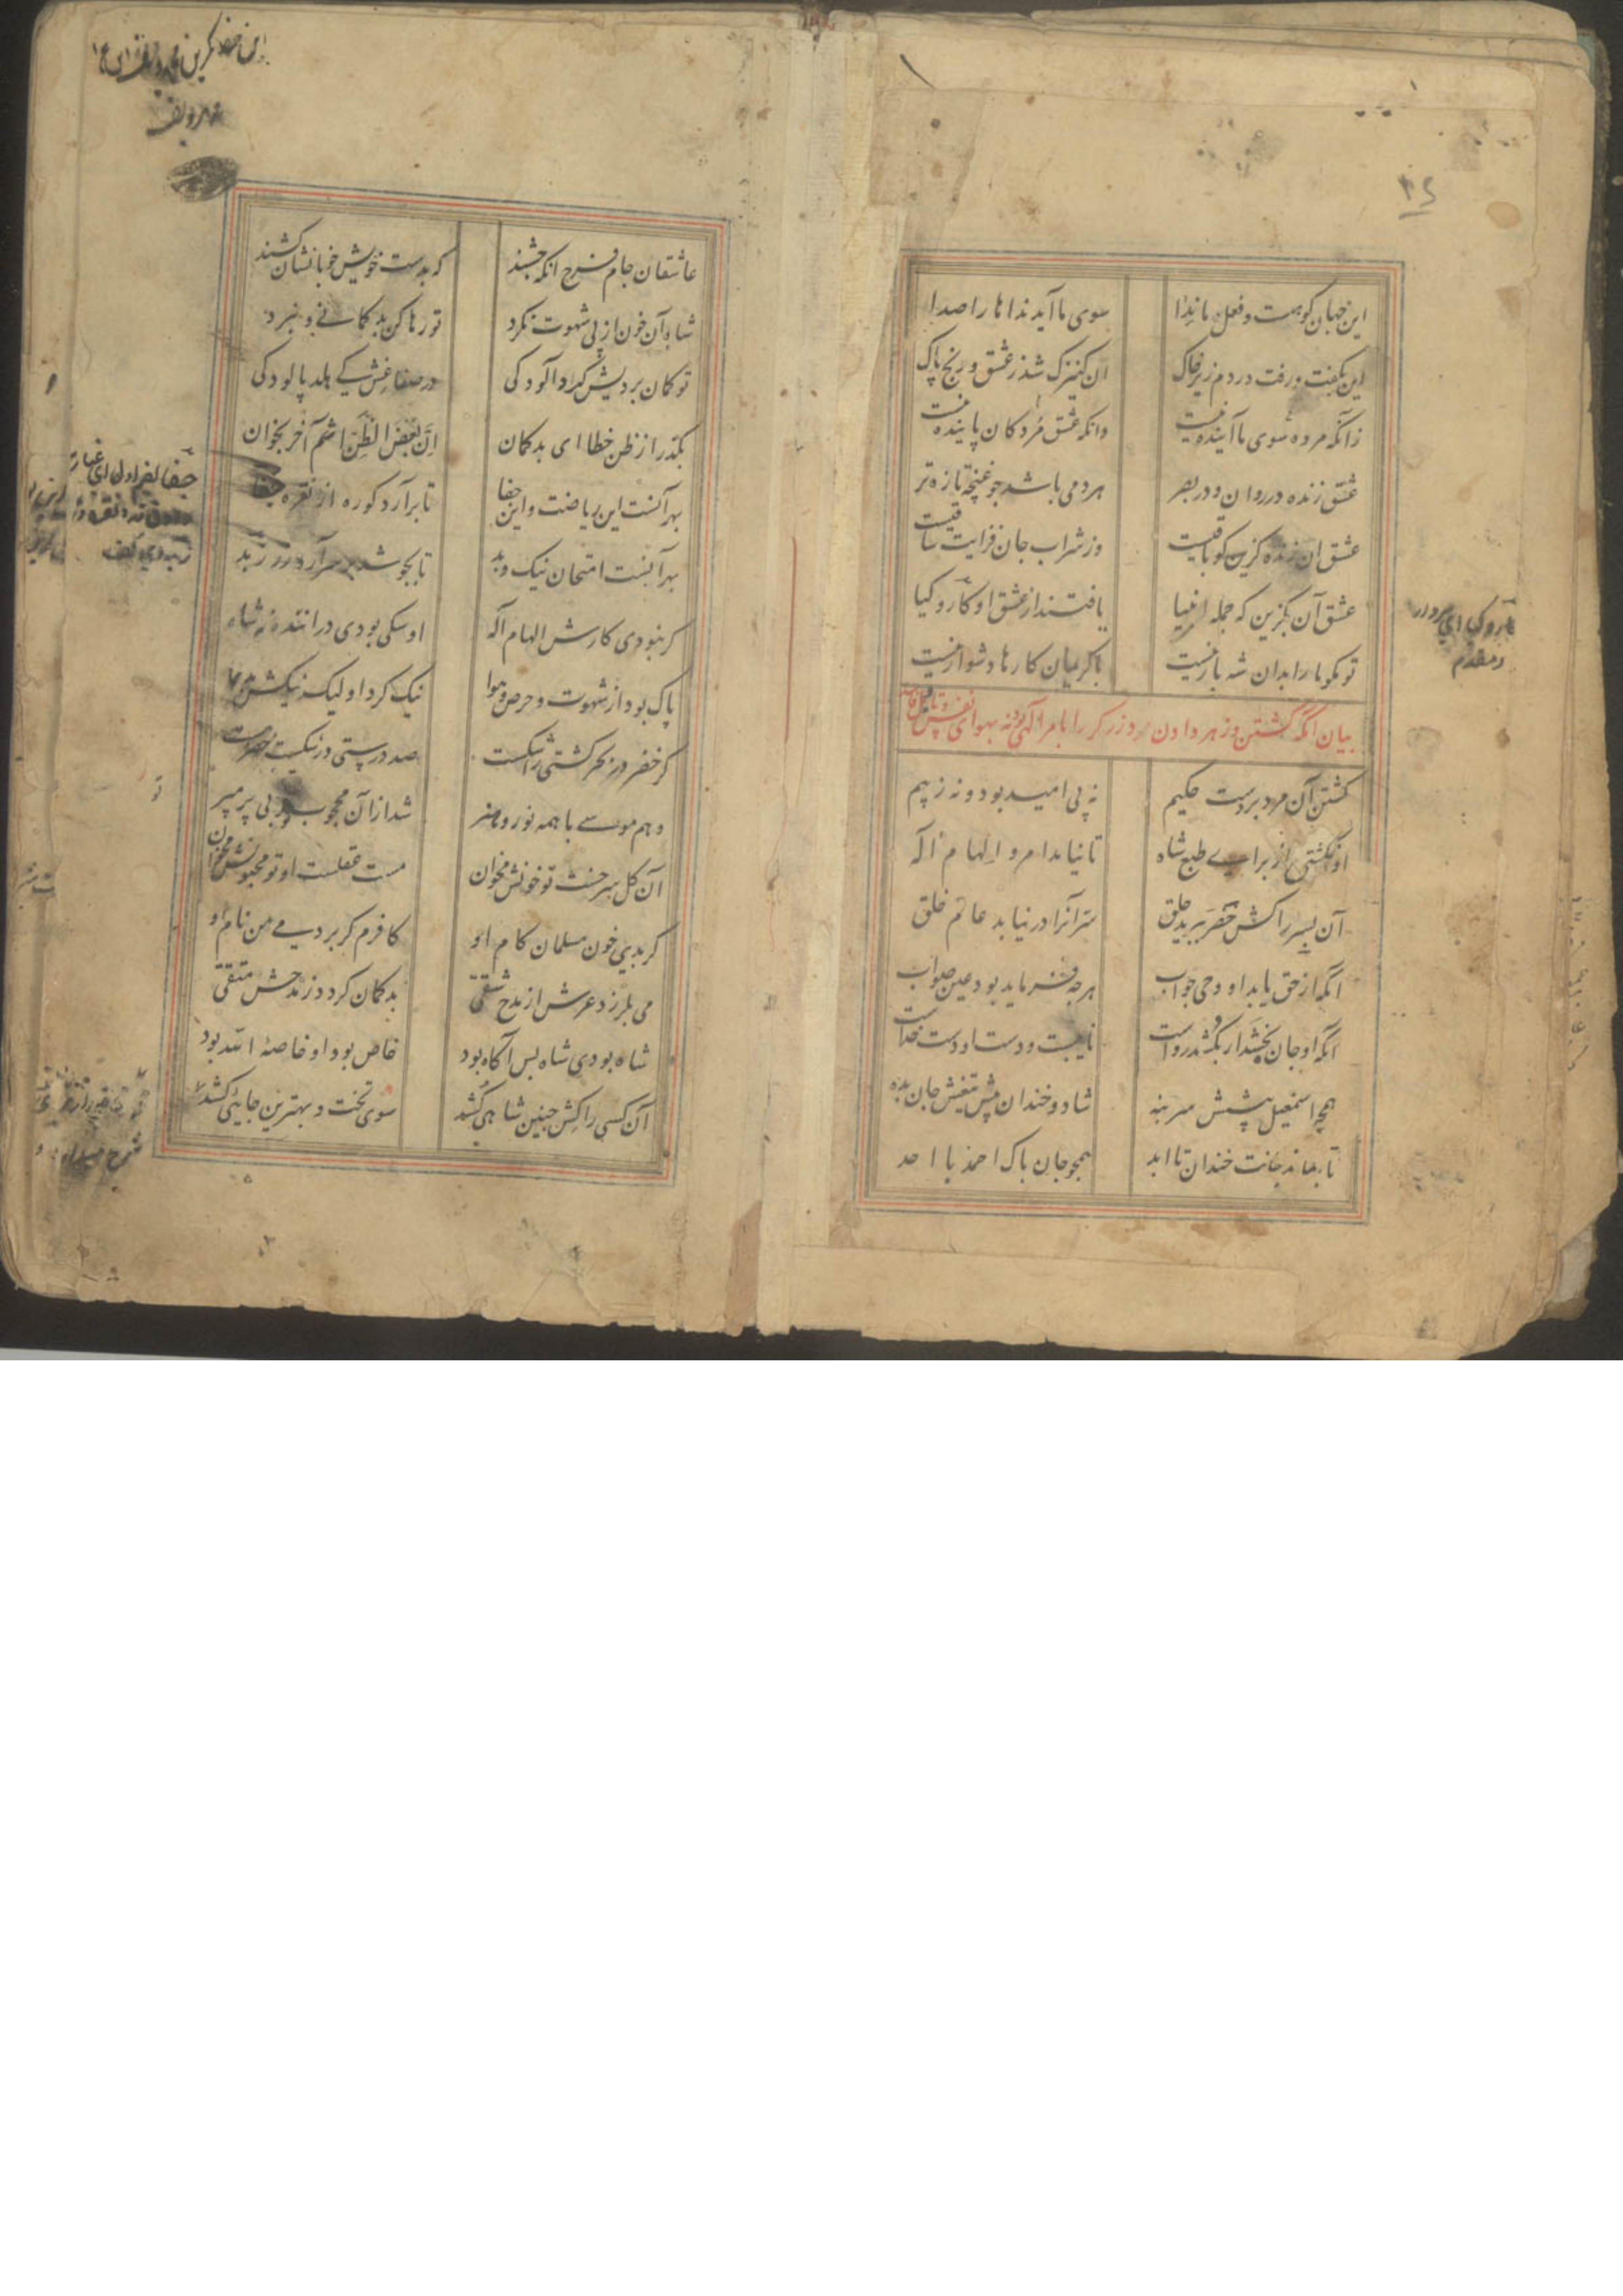 این جهان کوهست و فعل ما ندا سوی ما آید نداها را صدا
این بگفت و رفت در دم زیر خاک آن کنیزک شد ز عشق و رنج پاک
زانکه مرده سوی ما آینده نیست وانکه عشق مردکان پاینده نیست
عشق زنده در روان و در بصر هر دمی باشد جو غنچه تازه تر
عشق ان زنده کزین کو باقیست وز شراب جان فزایت ساقیست
عشق آن بکزین که جمله انبیا یافتند از عشق او کار و کیا
تو مکو ما را بدان شه بار نیست با کریمان کارها دشوار نیست
بیان انکه کشتن و زهر دادن مرد زرکر را بامر الهی بود نه بهوای نفس
کشتن آن مرد بر دست حکیم نه پی امید بود و نه ز بیم
او نکشتی از برای طبع شاه تا نیامد امر و الهام اله
آن پسر را کش خضر ببرید حلق سر آنرا در نیابد عام خلق
انکه از حق یابد او وحی جواب هرچه فرماید بود عین صواب
انکه او جان بخشد ار بکشد رواست نایبست و دست او دست خداست
همچو اسمعیل پیشش سر بنه شاد و خندان پیش تیغش جان بده
تا بماند جانت خندان تا ابد همچو جان پاک احمد با احد
عاشقان جام فرح انکه جشند که بدست خویش خوبانشان کشند
شاه آن خون از پی شهوت نکرد تو رها کن بد کمانی و نبرد
تو کمان بردیش کرد آلودکی در صفا غش کی هلد پالودکی
بکذر از ظن خطا ای بد کمان ان بعض الظن اثم آخر بخوان
بهر آنست این ریاضت واین جفا تا برآرد کوره از نقره جفا
بهر آنست امتحان نیک و بد تا بجوشد بر سر آرد زر زبد
کر نبودی کارش الهام اله او سکی بودی دراننده نه شاه
پاک بود از شهوت و حرص و هوا نیک کرد او لیک نیک بد نما
کر خضر در بحر کشتی را شکست صد درستی در شکست خضر هست
وهم موسی با همه نور و هنر شد از آن محجوب تو بی پر مپر
آن کل سرخست تو خونش مخوان مست عقلست او تو مجنونش مخوان
کر بدی خون مسلمان کام او کافرم کر بردمی من نام او
می بلرزد عرش از مدح شقی بد کمان کردد ز مدحش متقی
شاه بودی شاه بس آکاه بود خاص بود او خاصه الله بود
آن کسی را کش جنین شاهی کشد سوی تخت و بهترین جائی کشد